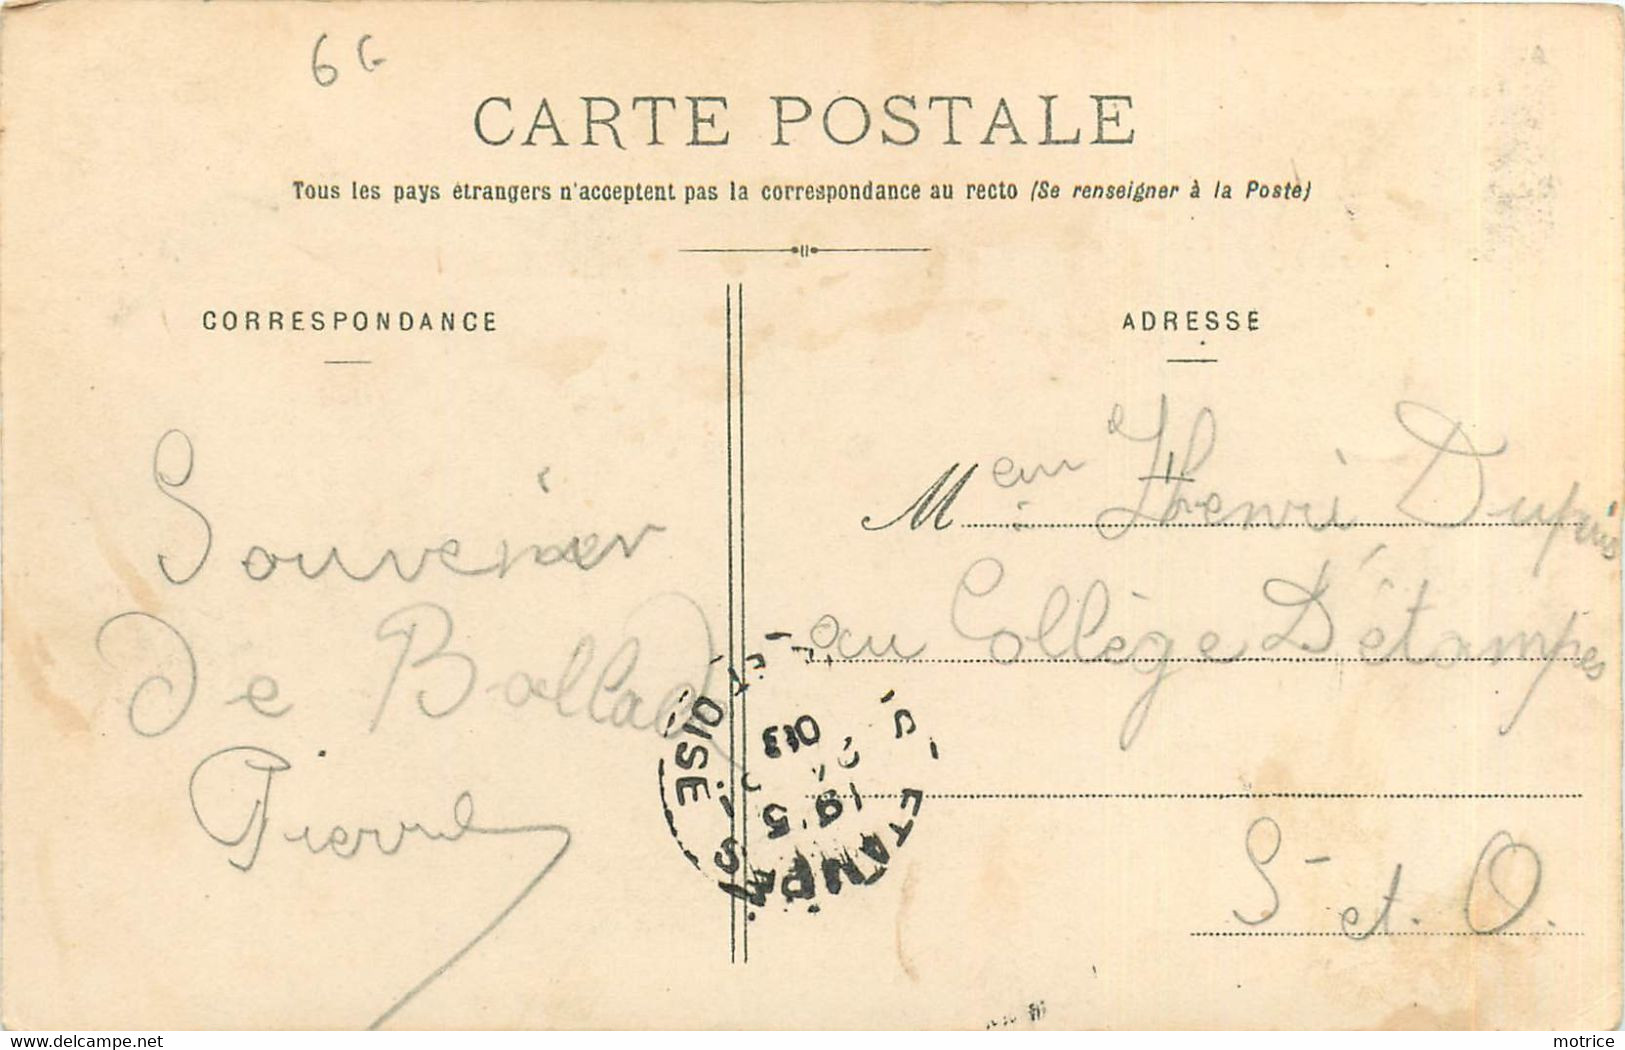 6G
CARTE POSTALE
Tous les pays étrangers n'acceptent pas la correspondance au recto (Se renseigner à la Poste)
CORRESPONDANCE
Souvenir
De Ballad
Pierre
ADRESSE
Meur Henri Dupuis
au Collège D'étampes
St et. O.
ETAMPES
OISE
19 5
08
Delcampe.net
motrice